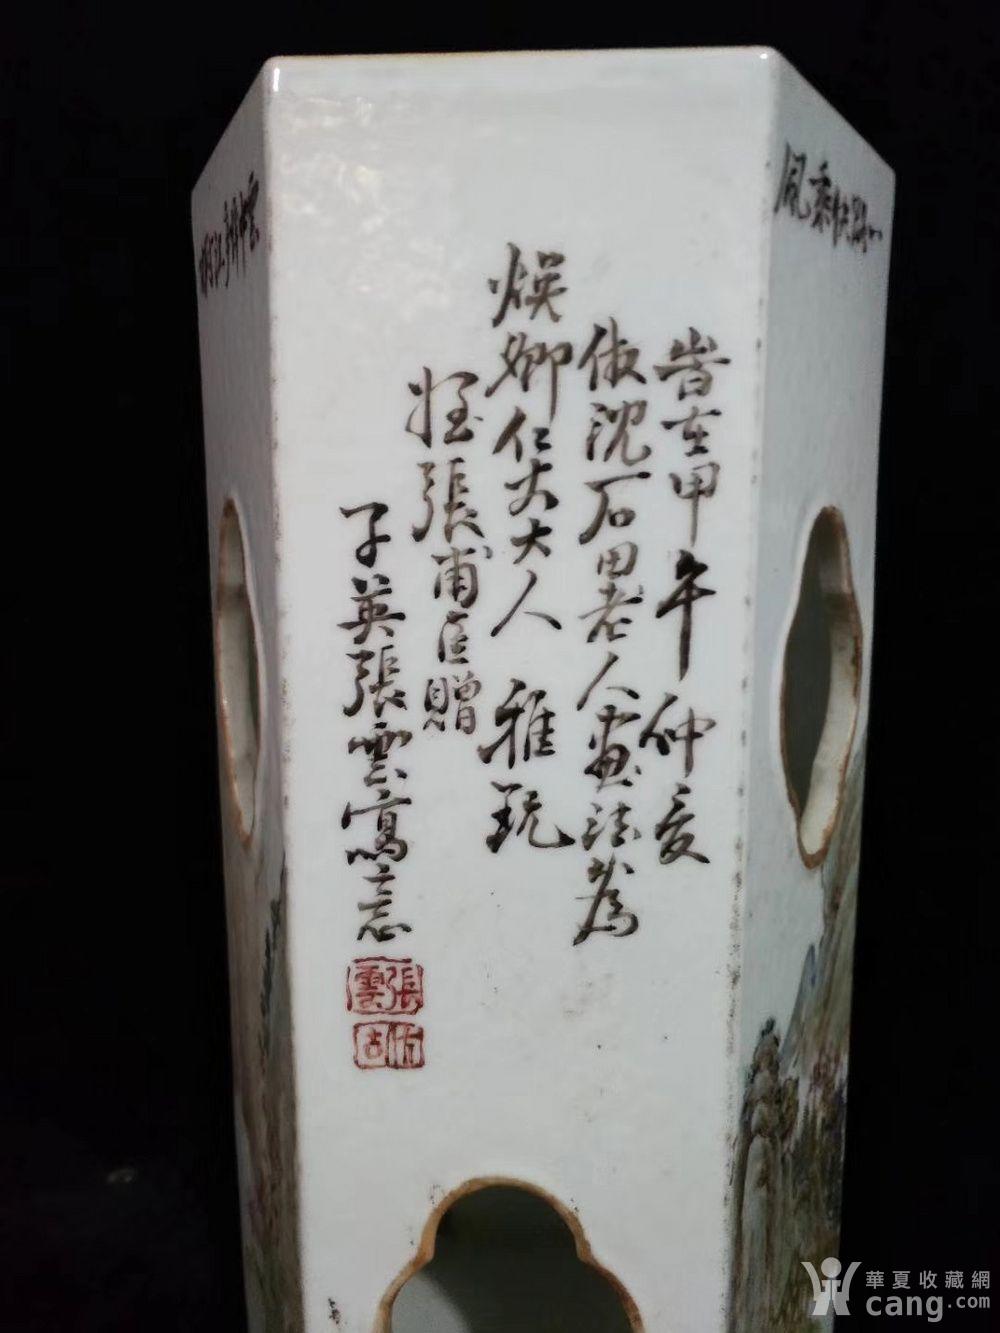 旹在甲午仲夏
倣沈石田老人畫法爲
煥卿仁丈大人 雅玩
姪張甫臣贈
子英張雲寫意
張雲
風乘
華夏收藏網
cang.com